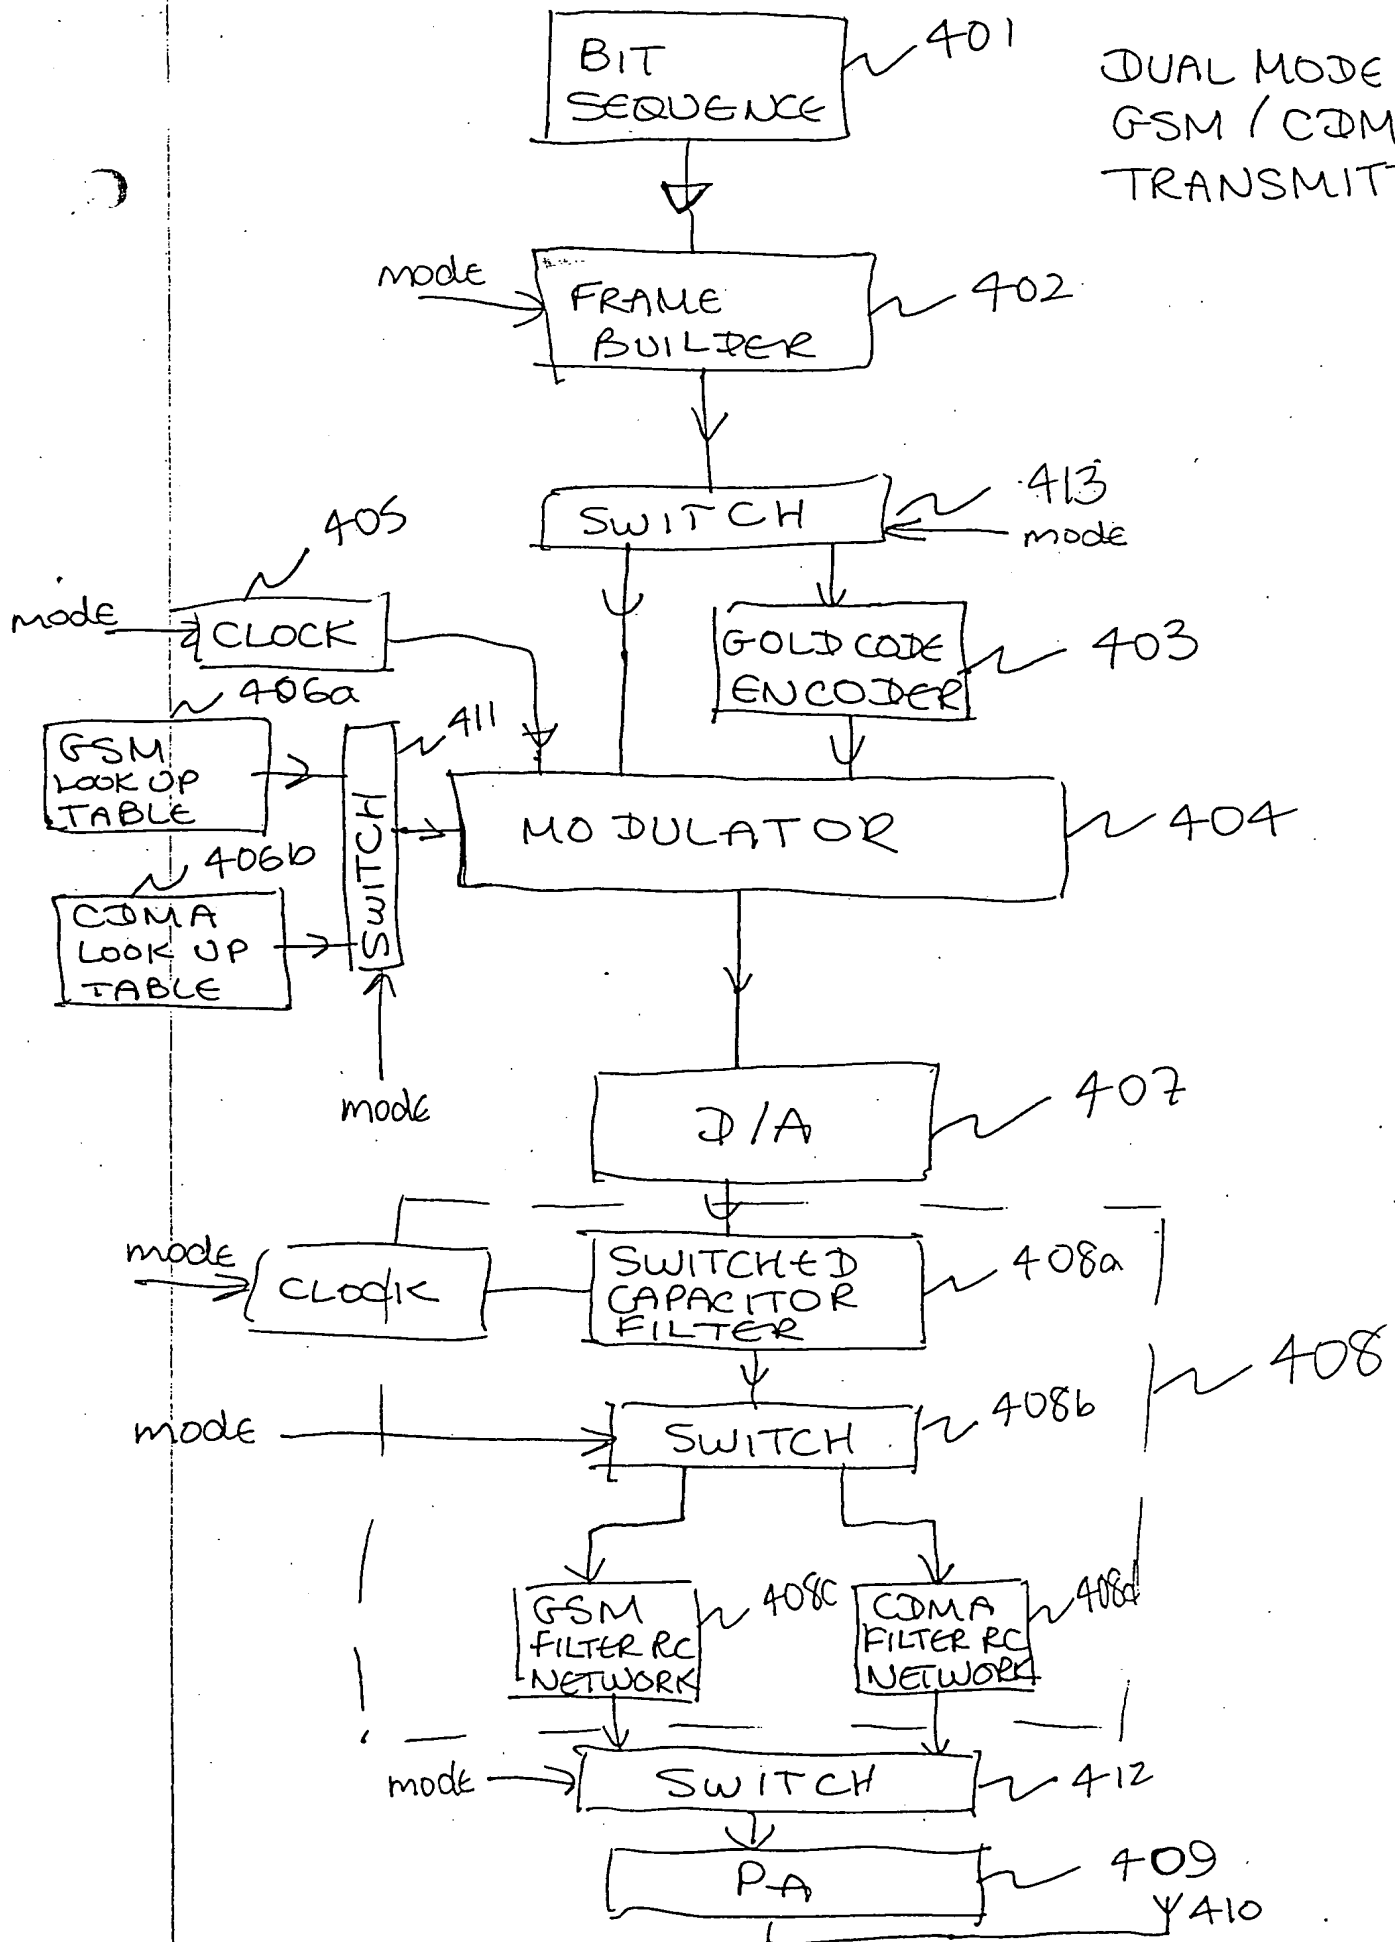 BIT
SEQUENCE
401
DUAL MODE
GSM / CDM
TRANSMITT
mode
FRAME
BUILDER
402
SWITCH
413
mode
405
mode
CLOCK
GOLD CODE
ENCODER
403
406a
GSM
LOOK UP
TABLE
411
SWITCH
MODULATOR
404
406b
CDMA
LOOK UP
TABLE
mode
D/A
407
mode
CLOCK
SWITCHED
CAPACITOR
FILTER
408a
408
mode
SWITCH
408b
GSM
FILTER RC
NETWORK
408c
CDMA
FILTER RC
NETWORK
408d
mode
SWITCH
412
PA
409
410